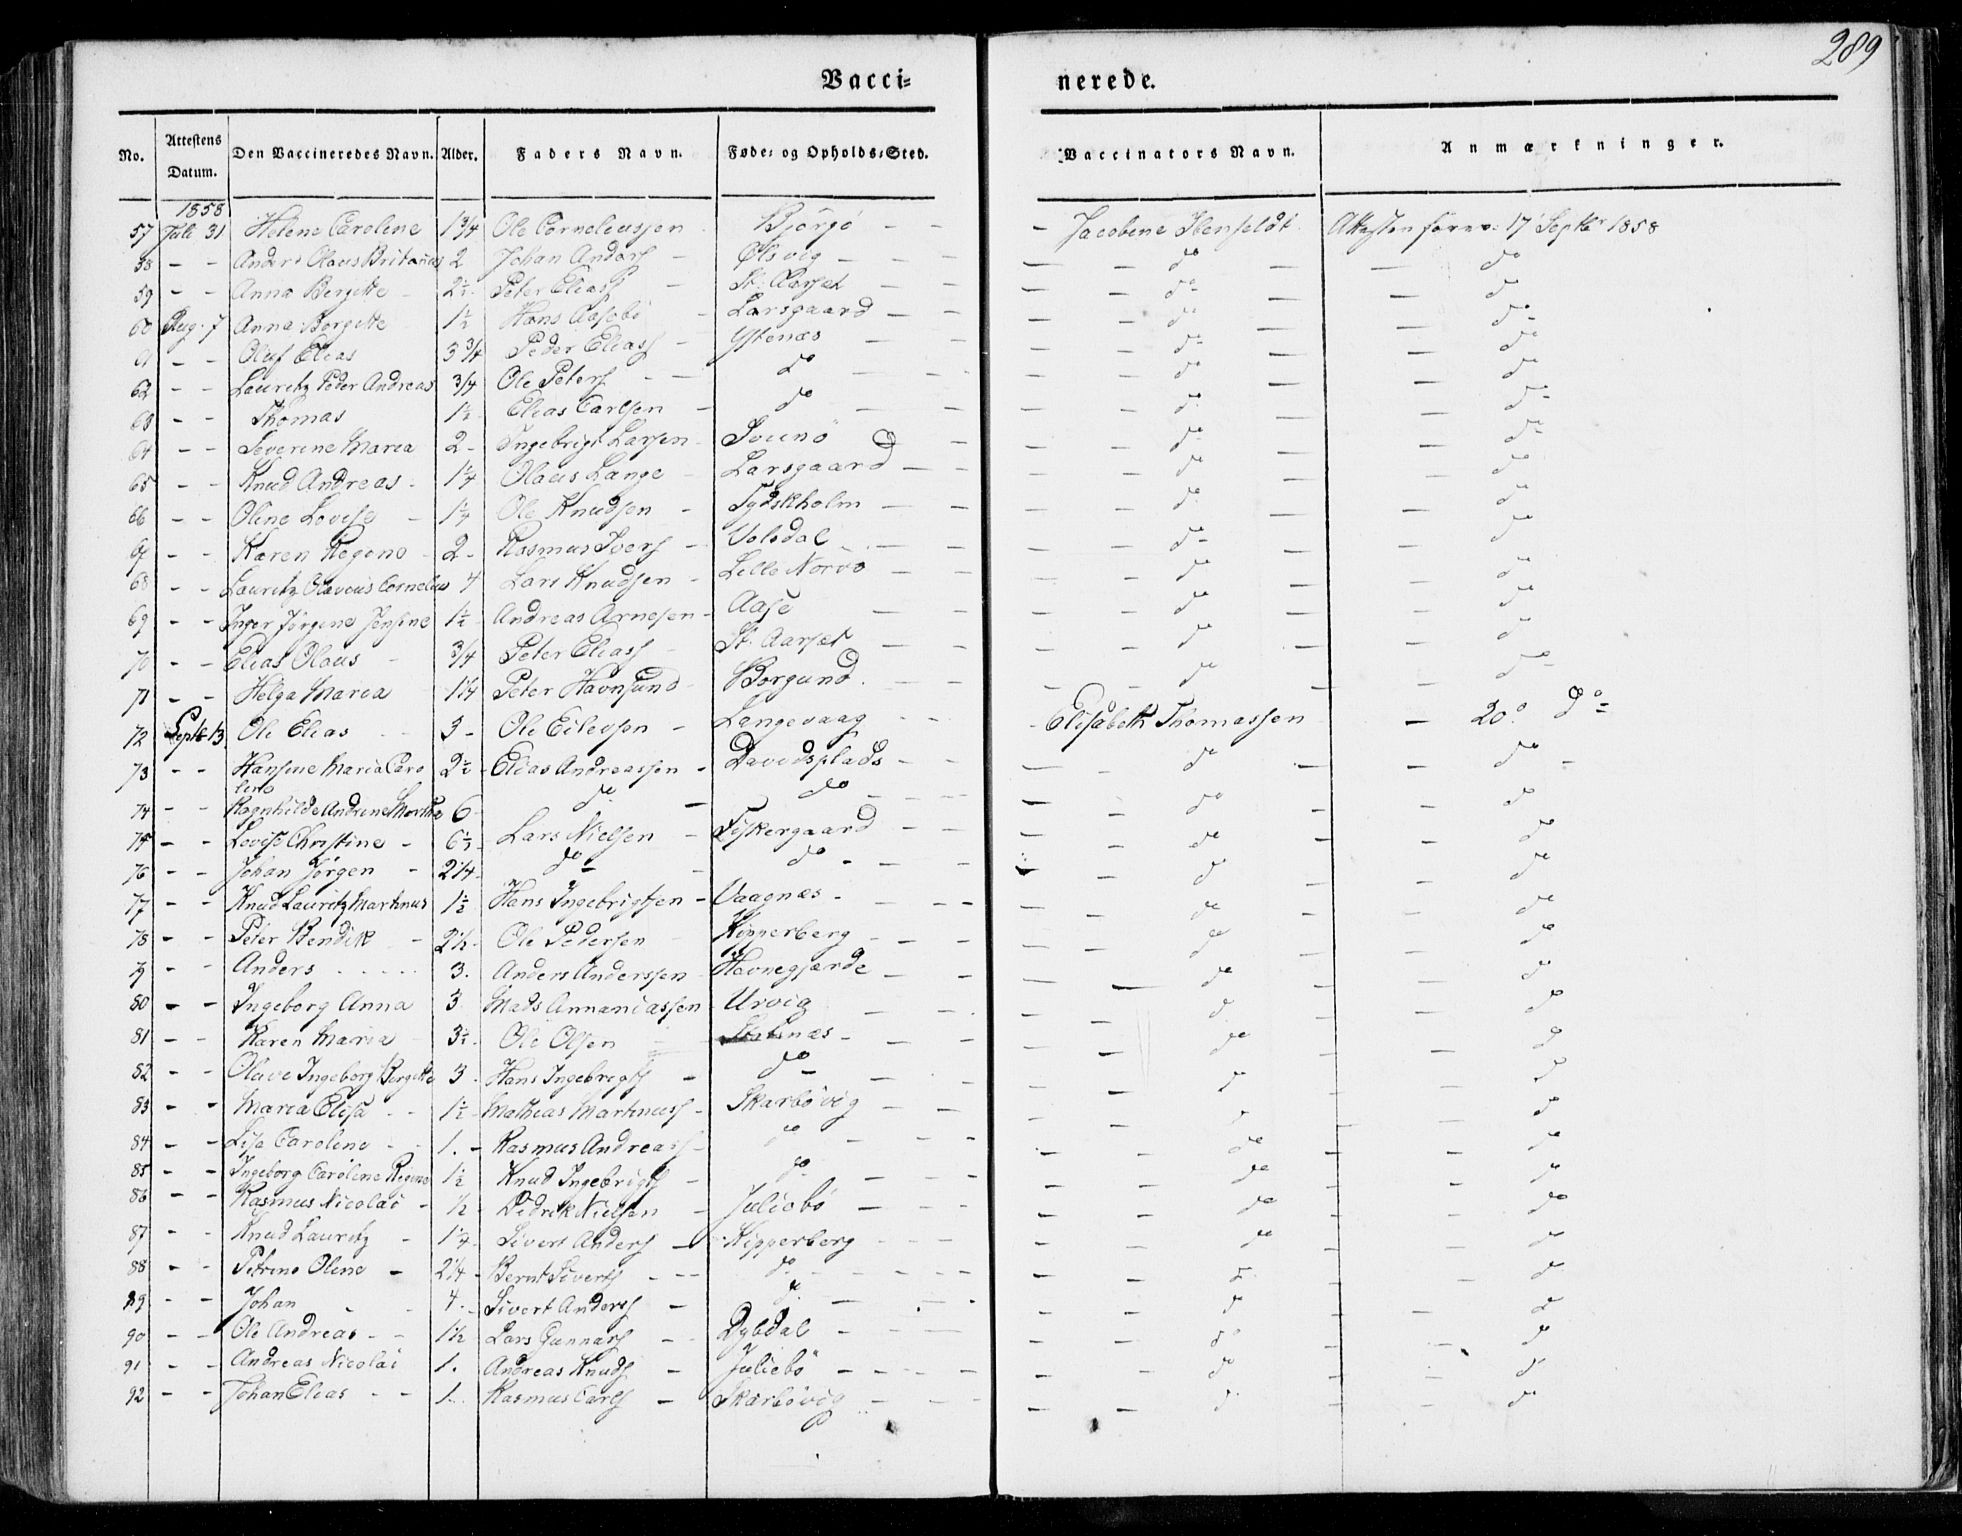 289
Vacci- nerede.
No. Attestens Datum. Den Vaccineredes Navn. Alder. Faders Navn. Føde- og Opholds-Sted. Vaccinators Navn. Anmærkninger.
1858
57 Juli 31 Helene Caroline 1 3/4 Ole Corneliussen Bjørgø - - - Jacobine Ibenfeldt Attesten 17 Septbr 1858
58 - - Anders Olaus 2 Johan Anders Ølsvig - - - do - do
59 - - Anna Bergitte 2 1/2 Peter Elias St. Aarset - - do - do
60 Aug. 7 Anna Bergitte 1 1/2 Hans Aasebø Larsgaard - - do - do
61 - - Oluf Elias 3 3/4 Peder Elias Ystenæs - - do - do
62 - - Lauritz Peder Andreas 3/4 Ole Peters do - - do - do
63 - - Thomas 1 1/2 Elias Carlsen do - - do - do
64 - - Severine Maria 2 - Ingebrigt Larsen Svinø - do - do
65 - - Knud Andreas 1 1/4 Olaus Lange Larsgaard - - do - do
66 - - Oline Lovise 1 1/4 Ole Knudsen Tydskholm - - do - do
67 - - Karen Regine 2 - Rasmus Ivers Volsdal - - do - do
68 - - Lauritz Olavius Cornelius 4 Lars Knudsen Lille Nørvø - - do - do
69 - - Inger Jørgine Jensine 1 1/2 Andreas Arnesen Aase - - do - do
70 - - Elias Olaus 3/4 Peter Elias St. Aarset - - do - do
71 - - Helga Maria 1 1/4 Peter Havnsund Borgund - - do - do
72 Septb 13 Ole Elias 3 - Ole Eilevsen Langevaag - - - Elisabeth Thomassen - 20 do
73 - - Hansine Maria Caro 2 1/2 Elias Andreassen Davidsplads - - do - do
line
74 - - Ragnhilde Andrine Martha 6 do do - - do - do
75 - - Lovise Christine 6 1/2 Lars Nielsen Fiskergaard - - do - do
76 - - Johan Jørgen 2 1/4 do do - - do - do
77 - - Knud Lauritz Martinus 1 1/2 Hans Ingebrigtsen Vaagnæs - - do - do
78 - - Peter Bendik 2 1/2 Ole Pedersen Kipperberg - - do - do
79 - - Anders 3. Anders Anderssen Havnegjærde - - do - do
80 - - Ingeborg Anna 3 Mads Annaniassen Urvig - - do - do
81 - - Karen Maria 3 1/2 Ole Olsen - - do - do
82 - - Olave Ingeborg Bergitte 3 Hans Ingebrigts do - - do - do
83 - - Maria Elisa 1 1/2 Mathias Martinus Skarbøvig - - do - do
84 - - Lise Caroline 1. - Rasmus Andreas do - - do - do
85 - - Ingeborg Caroline Regine 1 1/2 Knud Ingebrigts do - - do - do
86 - - Rasmus Nicolai 1/2 Didrik Nielsen Juliebø - - do - do
87 - - Knud Lauritz 1 1/4 Sivert Anders Kipperberg - - do - do
88 - - Petrine Oline 2 1/4 Bernt Siverts do - - do - do
89 - - Johan 4. Sivert Anders do - - do - do
90 - - Ole Andreas 1 1/2 Lars Gunnars Dybdal - - do - do
91 - - Andreas Nicolai 1. Andreas Knuds Juliebø - - do - do
92 - - Johan Elias 1. Rasmus Carls Skarbøvig - - do - do